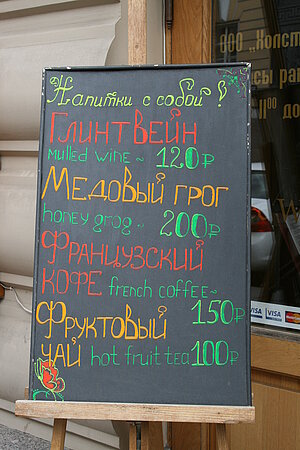 Напитки с собой!
Глинтвейн
mulled wine ~ 120р
Медовый грог
honey grog ~ 200р
Французский
кофе french coffee ~
150р
Фруктовый
чай hot fruit tea 100р
ООО „Холст
VISA VISA